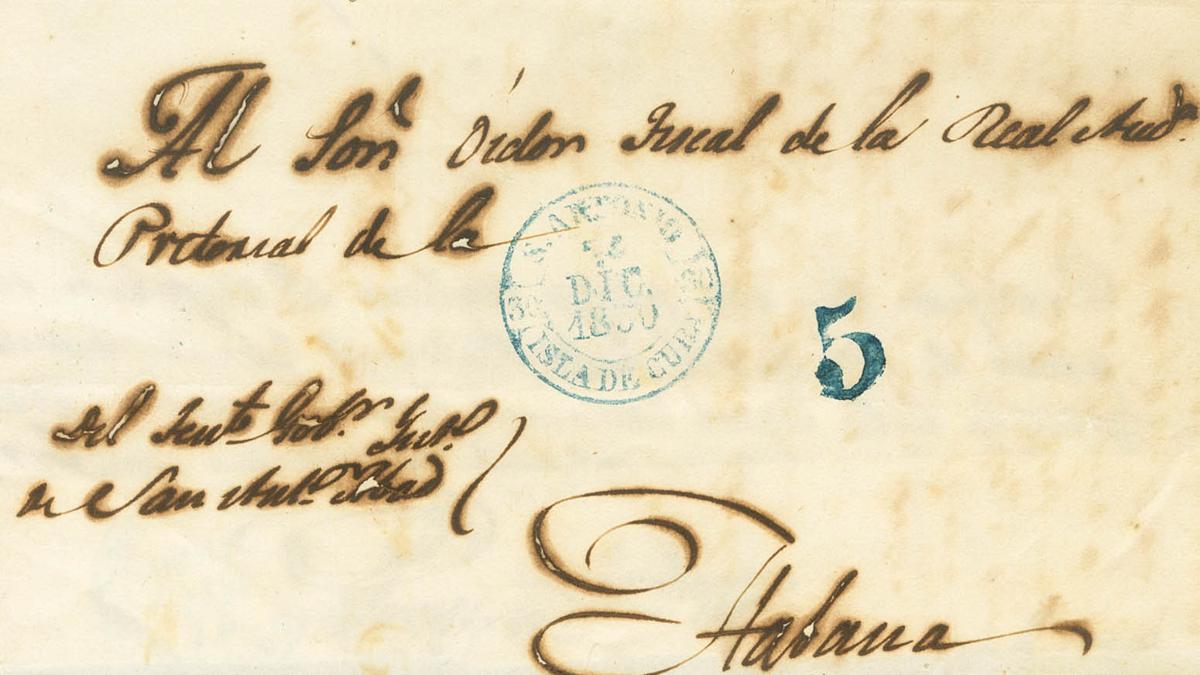 Al Sor Oidor Fiscal de la Real Auda
Pretorial de la
S. ANTONIO
DIC.
ISLA DE CUBA
5
Del Tente Gobr
de San Anto Abad
Habana